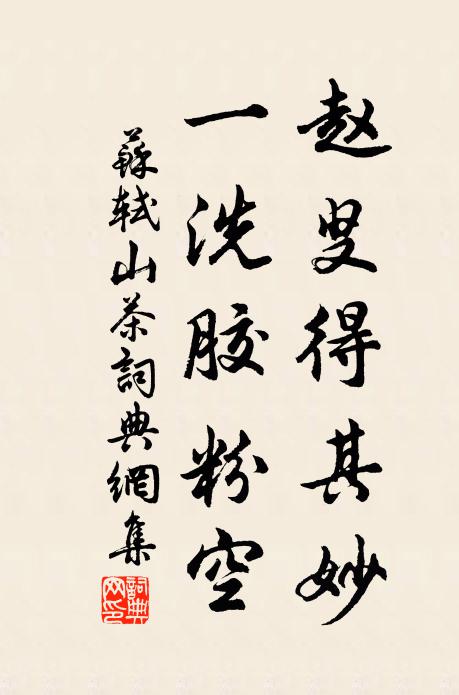 赵叟得其妙
一洗胶粉空
蘇軾山茶詞典網集
詞典网印